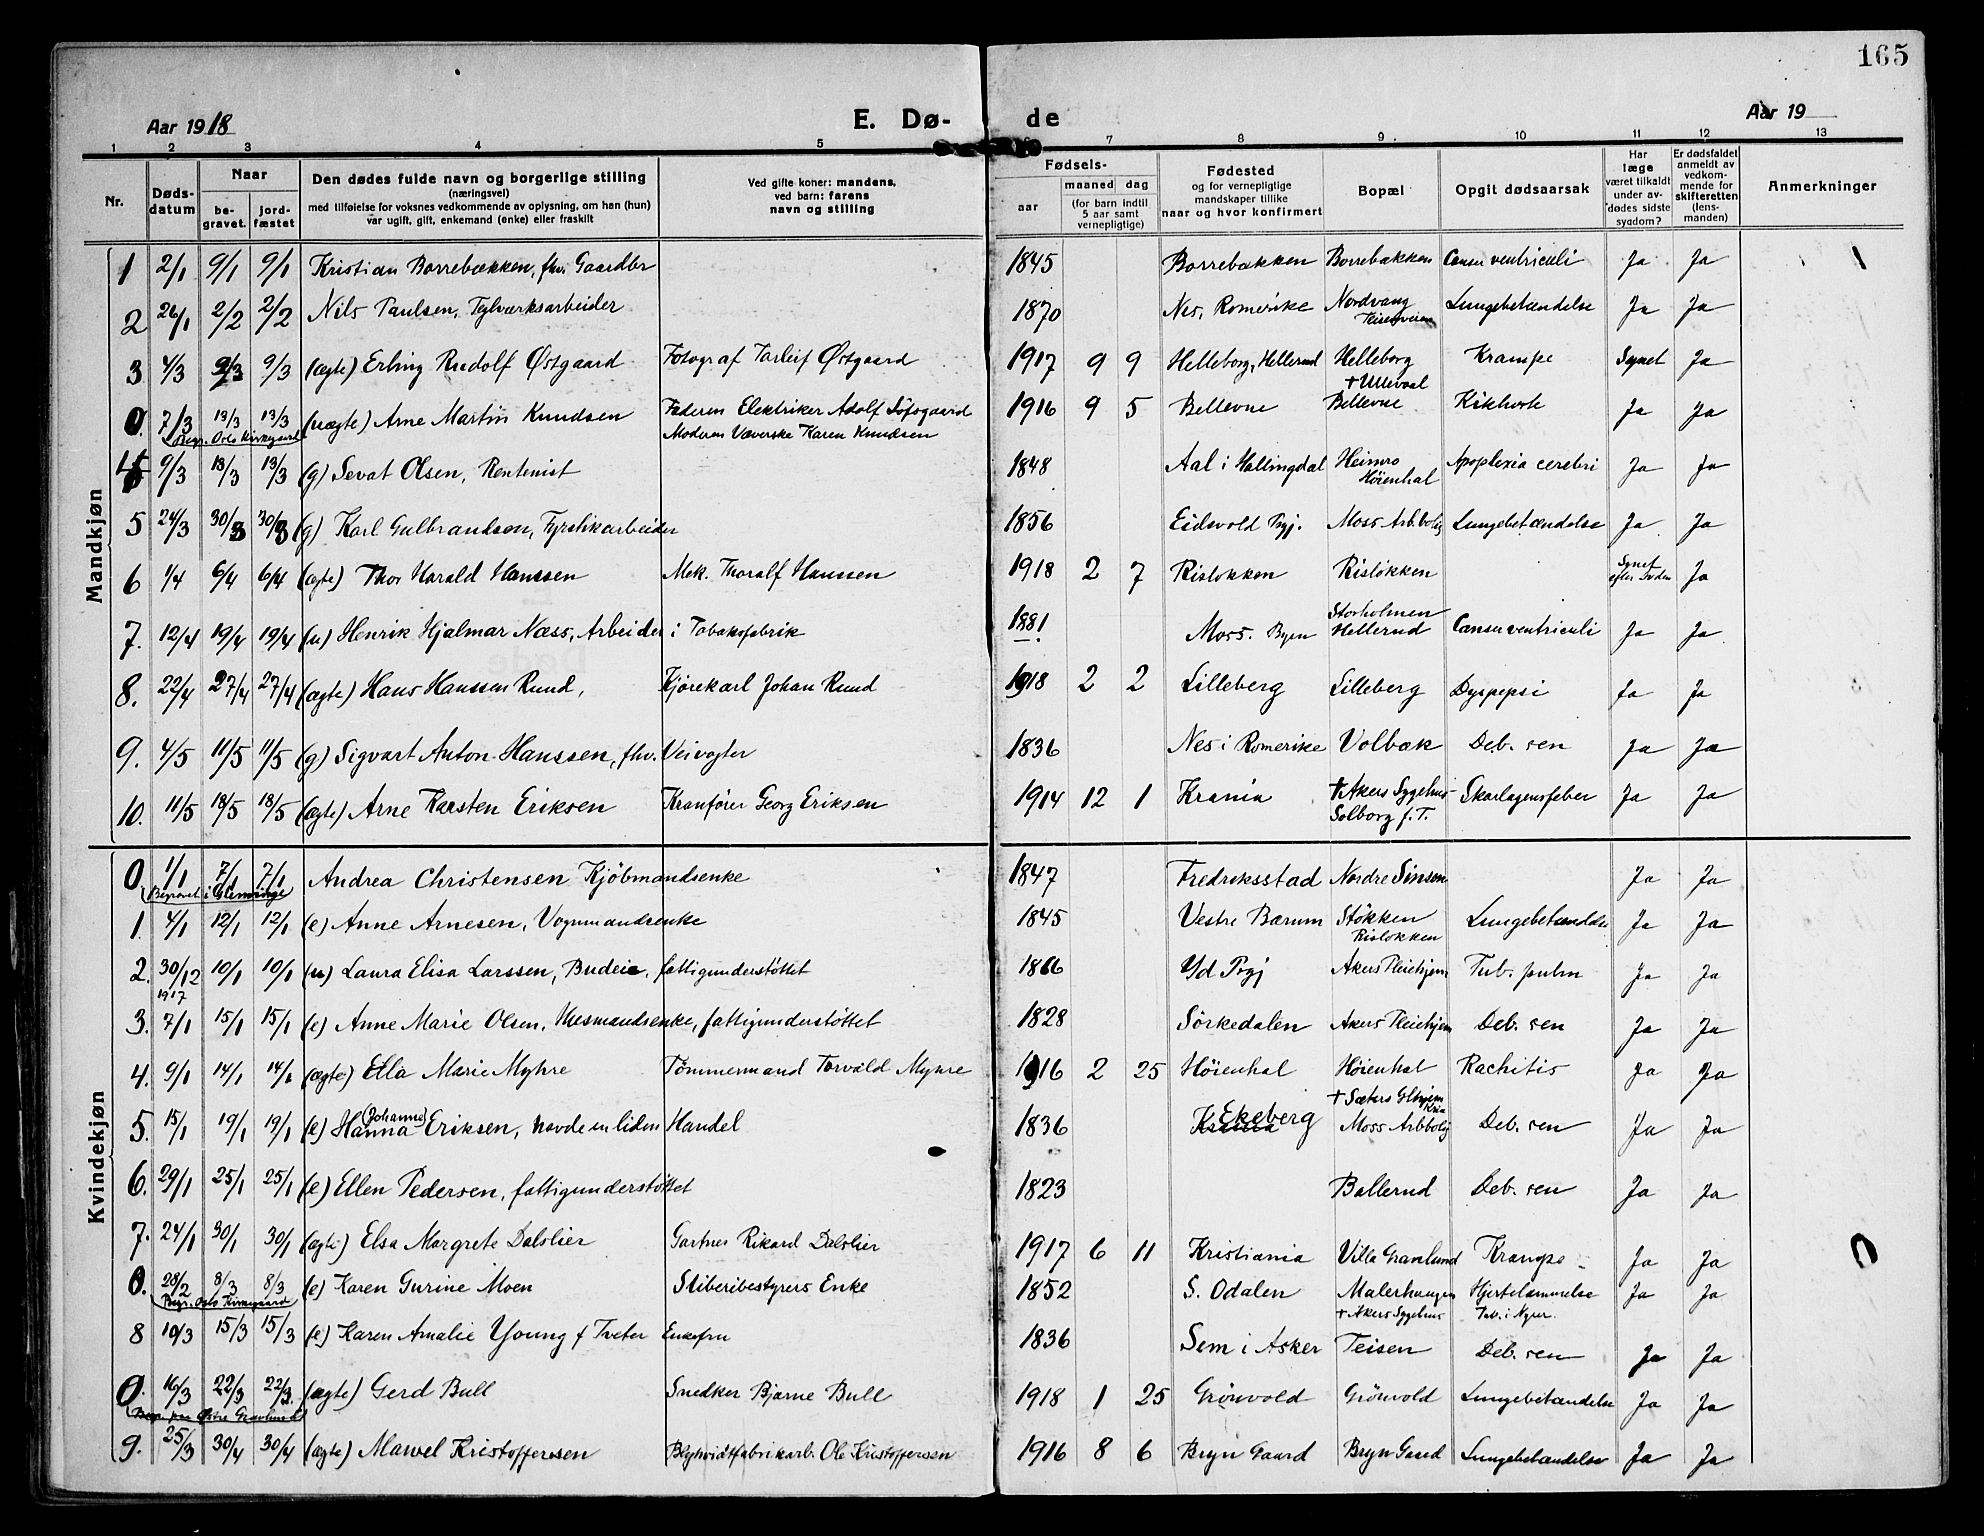 165
Aar 1918
E. Dø-
de
Aar 19
1 2 3 4 5 7 8 9 10 11 12 13
Nr.
Døds-
datum
Naar
be-
gravet.
jord-
fæstet
Den dødes fulde navn og borgerlige stilling
(næringsvei)
med tilføielse for voksnes vedkommende av oplysning, om han (hun)
var ugift, gift, enkemand (enke) eller fraskilt
Ved gifte koner: mandens,
ved barn: farens
navn og stilling
Fødsels-
aar
maaned dag
(for barn indtil
5 aar samt
vernepligtige)
Fødested
og for vernepligtige
mandskaper tillike
naar og hvor konfirmert
Bopæl
Opgit dødsaarsak
Har
læge
været tilkaldt
under av-
dødes sidste
sygdom?
Er dødsfaldet
anmeldt av
vedkom-
mende for
skifteretten
(lens-
manden)
Anmerkninger
Mandkjøn
1 2/1 9/1 9/1 Kristian Borrebækken, fhv. Gaardbr 1845 Borrebækken Borrebækken Cancer ventriculi Ja Ja 1
2 26/1 2/2 2/2 Nils Paulsen, Teglværksarbeider 1870 Nes, Romerike Nordvang Teisenveien Lungebetændelse Ja Ja
3 4/3 9/3 9/3 (ægte) Erling Rudolf Østgaard Fotograf Tarleif Østgaard 1917 9 9 Helleborg, Hellerud Helleborg Krampe Synet Ja
0. 7/3 13/3 13/3 (uægte) Arne Martin Knudsen Faderen Elektriker Adolf Sofsgaard 1916 9 5 Bellevue + Ullevaal Bellevue Kikhoste Ja Ja
Begr. Oslo Kirkegaard Moderen Væverske Karen Knudsen
4 9/3 13/3 13/3 (g) Sevat Olsen, Rentenist 1848 Aal i Hallingdal Heimro Høienhal Apoplexia cerebri Ja Ja
5 24/3 30/3 30/3 (g) Karl Gulbrandsen, Fyrstikarbeider 1856 Eidsvold Pgj. Moss Arb.bolig Lungebetændelse Ja Ja
6 1/4 6/4 6/4 (ægte) Thor Harald Hanssen Mek. Thoralf Hanssen 1918 2 7 Risløkken Risløkken Synet efter Døden Ja
7. 12/4 19/4 19/4 (u) Henrik Hjalmar Næss, Arbeider i Tobaksfabrik 1881 Moss. Byen Storholmen Hellerud Cancer ventriculi Ja Ja
8. 22/4 27/4 27/4 (ægte) Hans Hanssen Rund, Kjørekarl Johan Rund 1918 2 2 Lilleberg Lilleberg Dyspepsi Ja Ja
9. 4/5 11/5 11/5 (g) Sigvart Anton Hanssen, fhv. Veivogter 1836 Nes i Romerike Volbæk Deb. sen Ja Ja
10. 11/5 18/5 18/5 (ægte) Arne Karsten Eriksen Kranfører Georg Eriksen 1914 12 1 Krania + Akers Sygehus Solborg f. T. Skarlagensfeber Ja Ja
Kvindekjøn
0 1/1 7/1 7/1 Andrea Christensen Kjøbmandsenke 1847 Fredriksstad Nordre Sinsen Ja Ja
Begravet i Glemminge
1. 4/1 12/1 12/1 (e) Anne Arnesen, Vognmandsenke 1845 Vestre Bærum Støkken Risløkken Lungebetændelse Ja Ja
2. 30/12 1917 10/1 10/1 (u) Laura Elisa Larssen, Budeie, fattigunderstøttet 1866 Id Pgj Akers Pleiehjem Tub. pulm Ja Ja
3. 7/1 15/1 15/1 (e) Anne Marie Olsen, Husmandsenke, fattigunderstøttet 1828 Sørkedalen Akers Pleiehjem Deb. sen Ja Ja
4. 9/1 14/1 14/1 (ægte) Ella Marie Myhre Tømmermand Torvald Myhre 1916 2 25 Høienhal Høienhal Rachitis Ja Ja
5. 15/1 19/1 19/1 (e) Hanna (Johanne) Eriksen, havde en liden Handel 1836 Krania Ekeberg + Sæters Glhjem Kria Moss Arb.bolig Deb. sen Ja Ja
6. 29/1 25/1 25/1 (e) Ellen Pedersen, fattigunderstøttet 1823 Ballerud Deb. sen Ja Ja
7. 24/1 30/1 30/1 (ægte) Elsa Margrete Dalslier Gartner Rikard Dalslier 1917 6 11 Kristiania Villa Granlund Krampe Ja Ja 0
0. 28/2 8/3 8/3 (e) Karen Gurine Moen Stiberibestyrers Enke 1852 S. Odalen Malerhaugen + Akers Sygehus Hjertelammelse Tub. i Nyrer. Ja Ja
Begr. Oslo Kirkegaard
8 10/3 15/3 15/3 (e) Karen Amalie Young f Tveter Enkefru 1836 Sem i Asker Teisen Deb. sen Ja Ja
0. 16/3 22/3 22/3. (ægte) Gerd Bull Snedker Bjarne Bull 1918 1 25 Grønvold Grønvold Lungebetændelse Ja Ja
Begr. paa Østre Gravlund
9. 25/3 30/4 30/4 (ægte) Marvel Kristoffersen Blyhvidtfabrikarb. Ole Kristoffersen 1916 8 6 Bryn Gaard Bryn Gaard Lungebetændelse Ja Ja